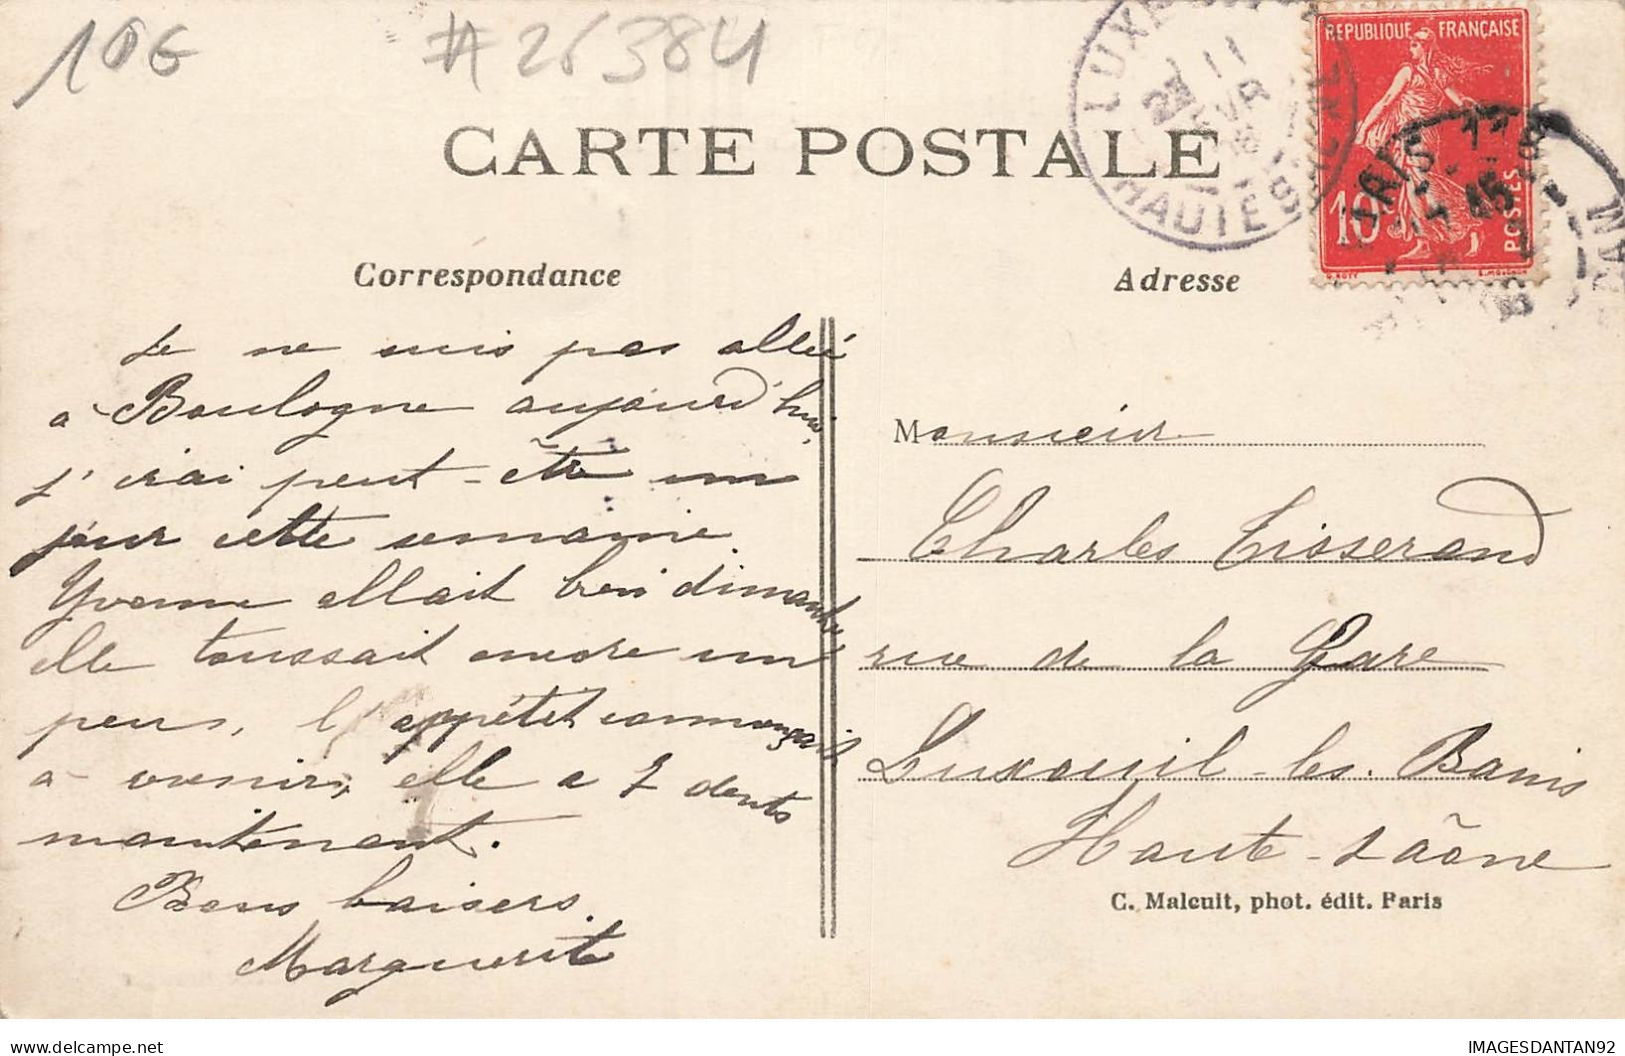 10€
#26384
REPUBLIQUE FRANÇAISE
10c
POSTES
LUXEUIL
HAUTE SAÔNE
PARIS
CARTE POSTALE
Correspondance
Je ne suis pas allée
à Boulogne aujourd'hui,
j'irai peut-être un
jour cette semaine.
Yvonne allait bien dimanche
elle toussait encore un
peu, l'appétit commençait
à venir, elle a 2 dents
maintenant.
Bons baisers
Marguerite
Adresse
Monsieur
Charles Tisserand
rue de la Gare
Luxeuil-les-Bains
Haute-Saône
C. Malcuit, phot. édit. Paris
IMAGESDANTAN92
delcampe.net